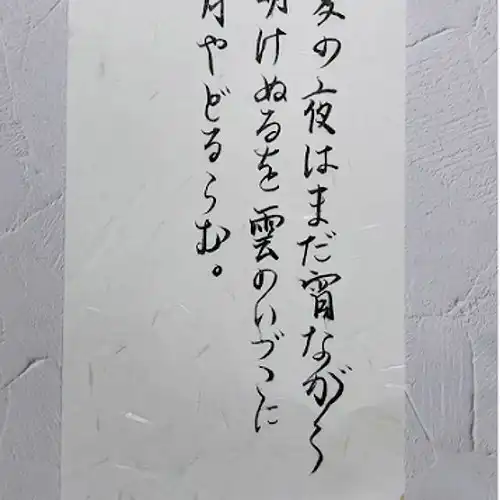 夏の夜はまだ宵ながら
明けぬるを雲のいづこに
月やどるらむ。